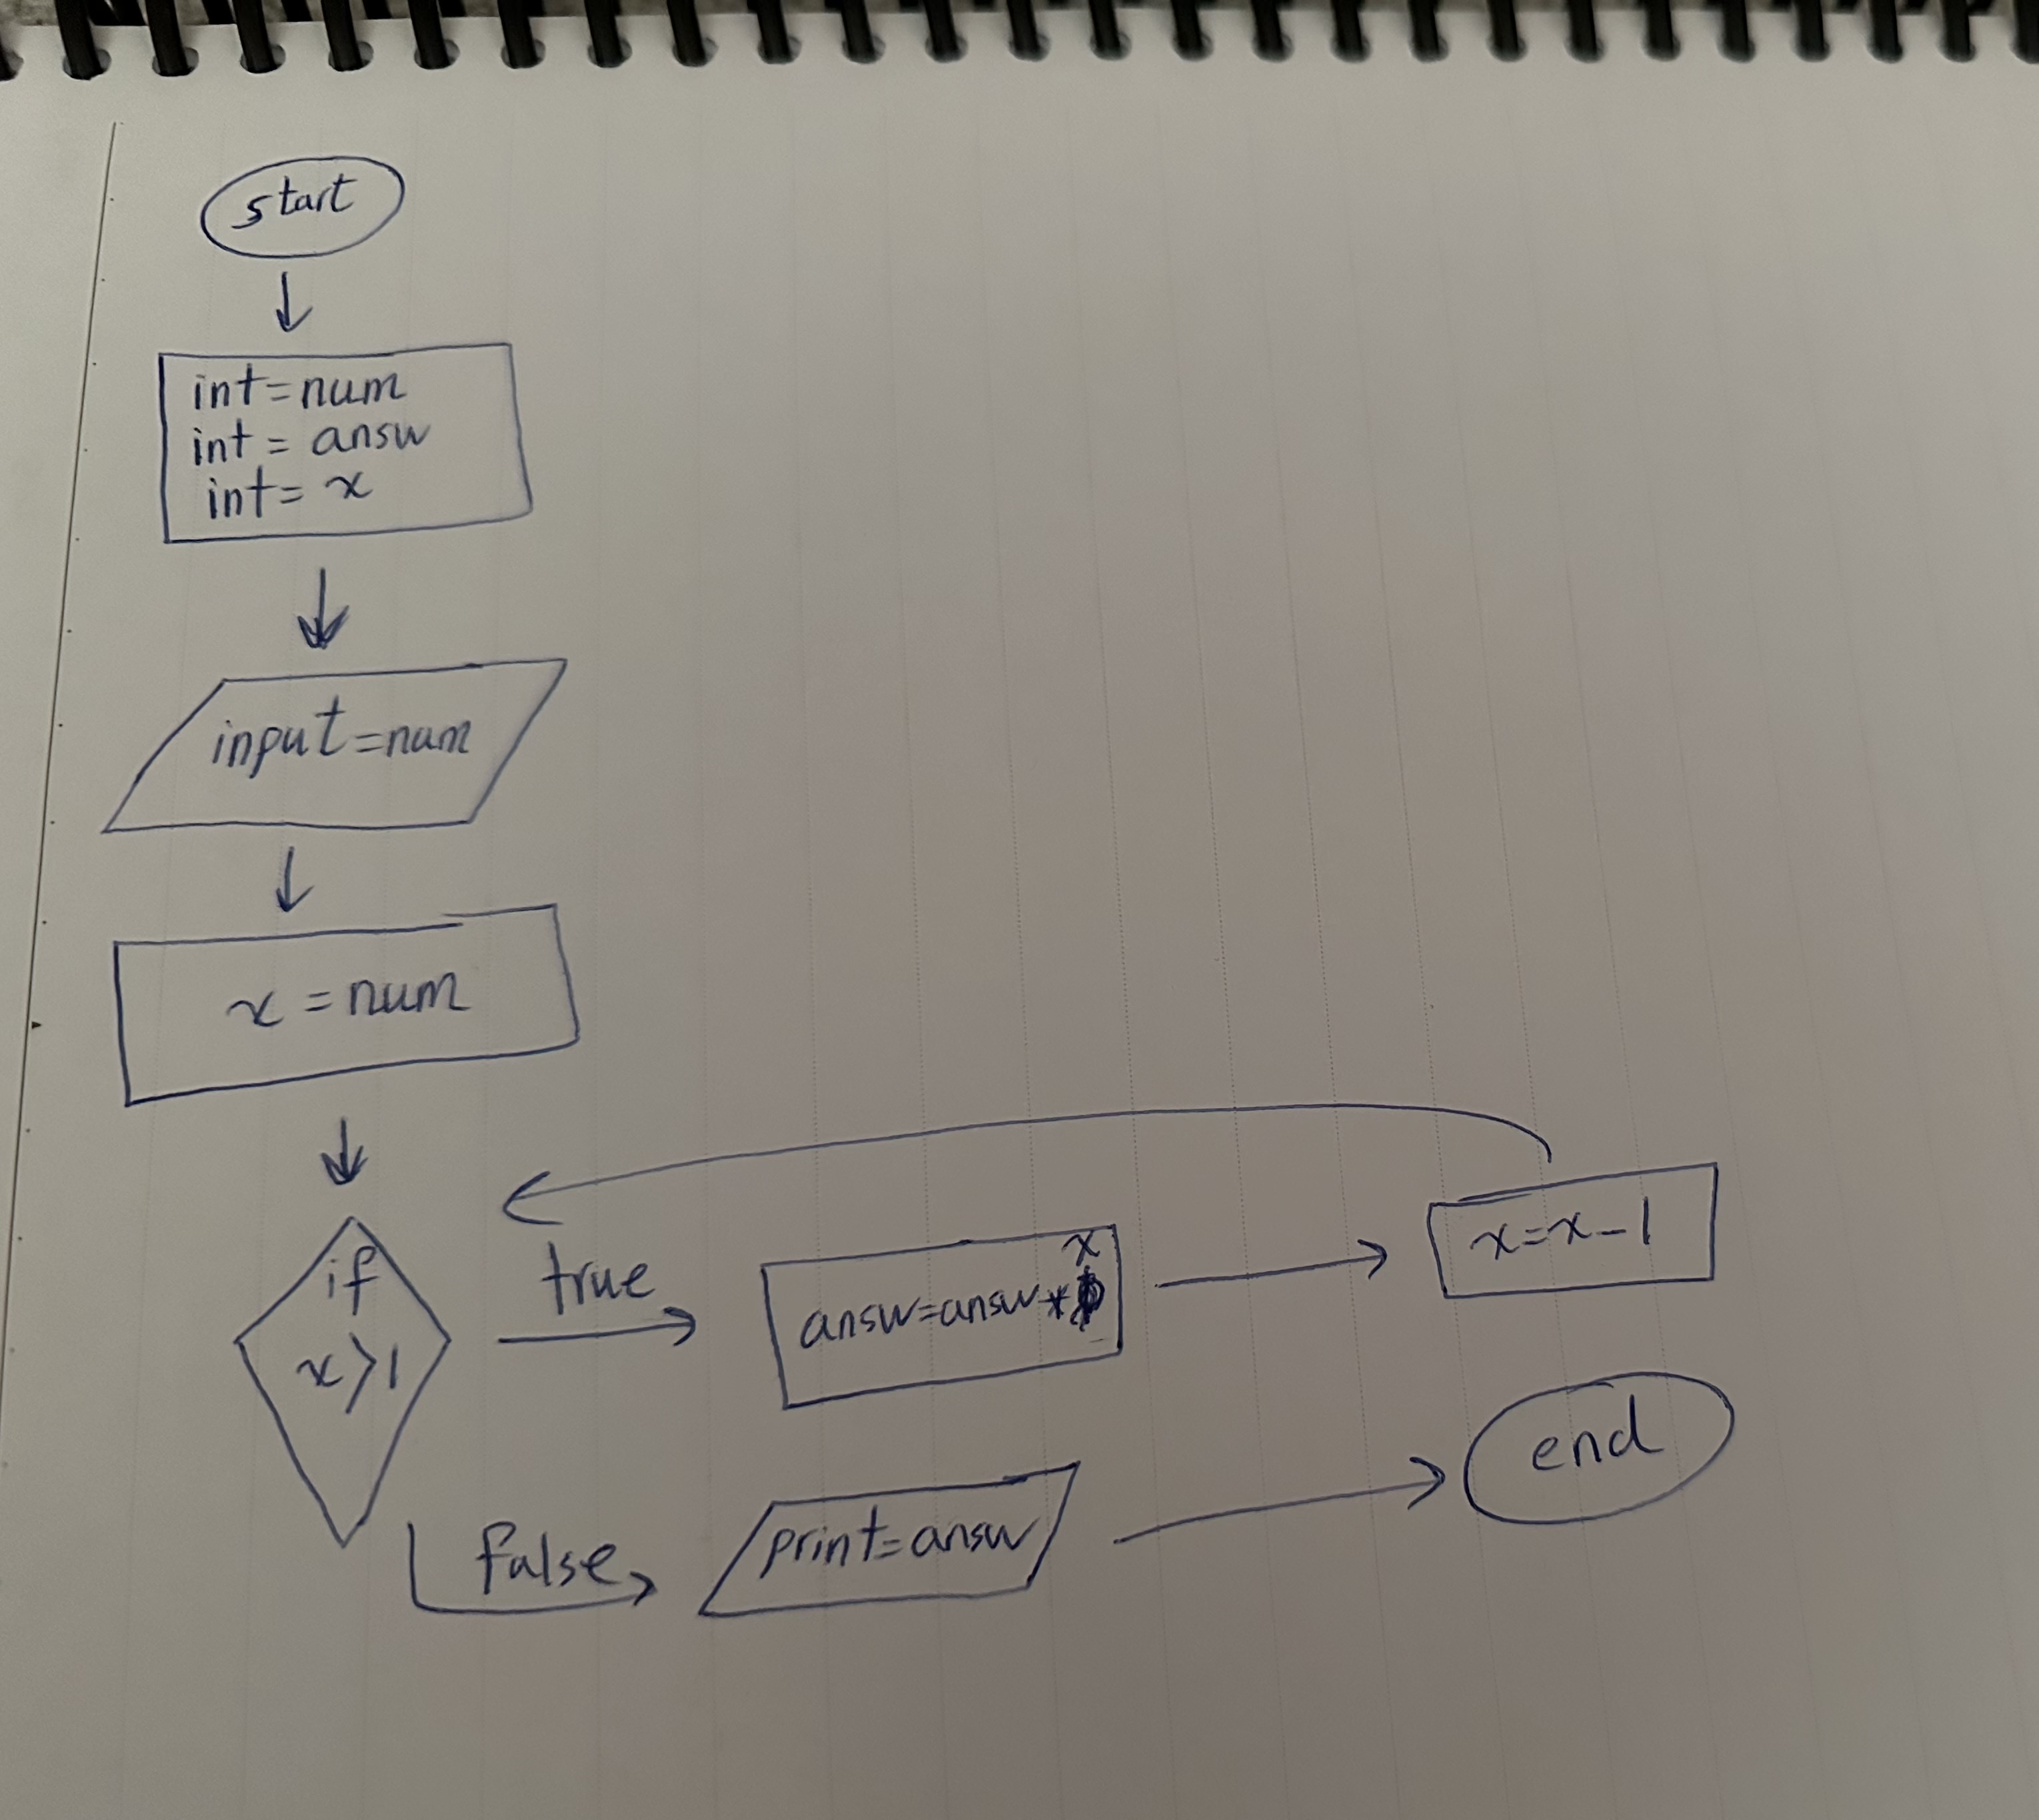 start
int=num
int= answ
int= x
input=num
x=num
if
x>1
true
x
answ=answ*
x=x-1
false
print=answ
end